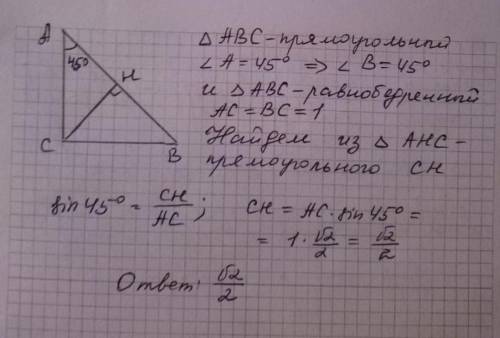 A
45°
H
C
B
△ ABC – прямоугольный
∠ A = 45° => ∠ B = 45°
и △ ABC – равнобедренный
AC = BC = 1
Найдем из △ AHC –
прямоугольного CH
sin 45° = CH/AC ; CH = AC · sin 45° =
= 1 · √2/2 = √2/2
Ответ: √2/2